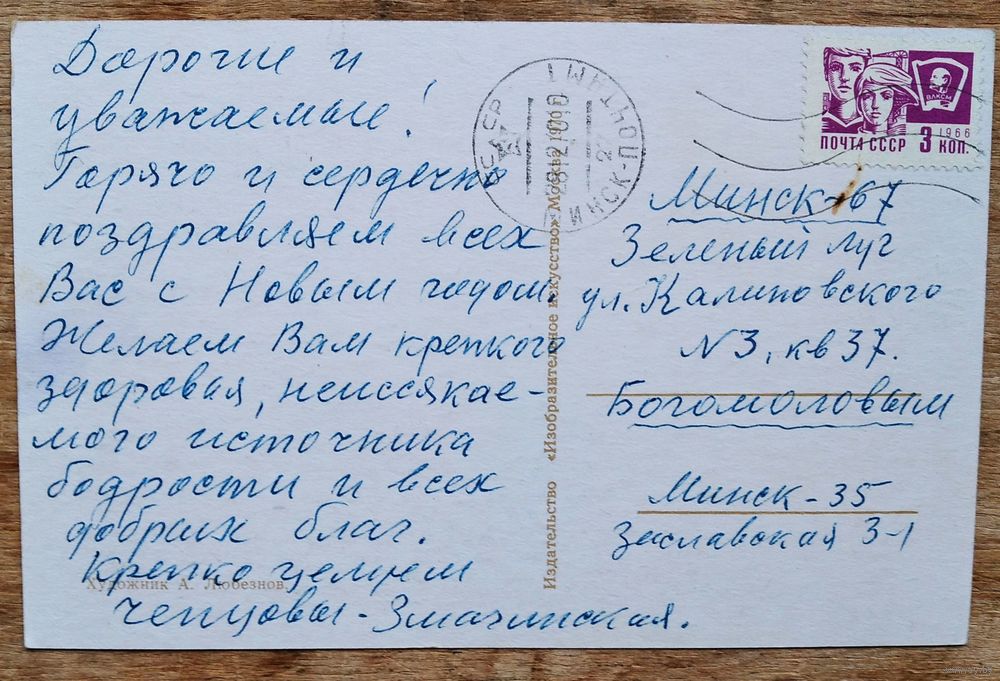 Дорогие и
уважаемые!
Горячо и сердечно
поздравляем всех
Вас с Новым годом.
Желаем Вам крепкого
здоровья, неиссякае-
мого источника
бодрости и всех
добрых благ.
Крепко целуем
Чепцовы - Змачинская.
Художник А. Любезнов.
Издательство «Изобразительное искусство» Москва 1969
БССР
МИНСК-ПОЧТАМТ
2
ВЛКСМ
1966
ПОЧТА СССР 3 КОП.
Минск-67
Зеленый луг
ул. Калиновского
N 3, кв 37.
Богомоловым
Минск-35
Заславская 3-1